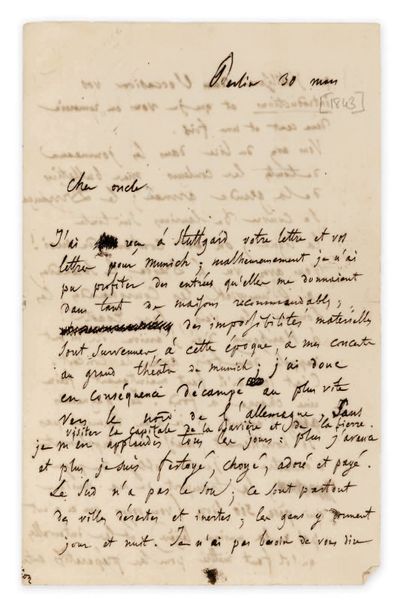 Berlin 30 mars
[1843]
Cher oncle
J'ai reçu à Stuttgard votre lettre et vos
lettres pour Munich ; malheureusement je n'ai
pu profiter des entrées qu'elles me donnaient
dans tant de maisons recommandables ;
des impossibilités matérielles
sont survenues, à cette époque, à mes concerts
au grand théâtre de munich ; j'ai donc
en conséquence décampé au plus vite
vers le nord de l'allemagne, sans
visiter la capitale de la Bavière et de la bierre.
je m'en applaudis tous les jours : plus j'avance
et plus je suis festoyé, choyé, adoré et payé.
Le Sud n'a pas le sou ; ce sont partout
des villes désertes et inertes ; les gens y dorment
jour et nuit. Je n'ai pas besoin de vous dire